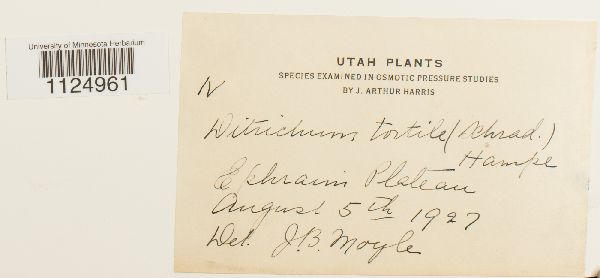 University of Minnesota Herbarium
1124961
UTAH PLANTS
SPECIES EXAMINED IN OSMOTIC PRESSURE STUDIES
BY J. ARTHUR HARRIS
N
Ditrichum tortile (Schrad.)
Hampe
Ephraim Plateau
August 5th 1927
Det. J.B. Moyle